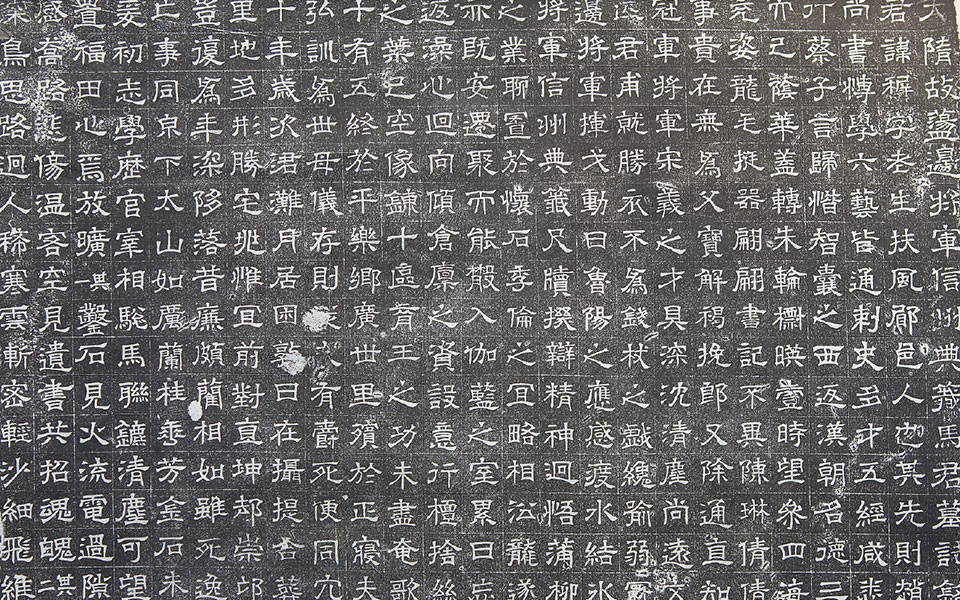 大隋故蕩邊将軍信州典籖馬君墓誌銘
君諱穉字老生扶風郿邑人也其先則趙
尚書博學六藝皆通刺史多才五經咸悉
行蔡子言歸惜智囊之西返漢朝名德三
而已蔭華蓋轉朱輪櫛暎臺時望衆四海
亮姿龍毛挺器翩翩書記不異陳琳倩倩
事貴在無為父寶解褐挽郎又除通直知
冠軍将軍宋義之才具深沈清塵尚遠
遠君甫就勝衣不為錢杖之戲纔踰弱冠
邊将軍揮戈動日魯陽之應感渡水結氷
将軍信州典籤尺牘撰辯精神迥悟蒲柳
之業聊置於懷石季倫之冝略相江蘢遂
亦既安遷聚而能散入伽藍之室累日忘
返澡心迴向傾倉廩之資設意行檀捨絲
之葉已空像鍊十盡育王之功未盡奄歌
十有五終於平樂鄉廣世里殯於正寢夫
弘訓為世母儀存則有齊死便同穴
十年歲次君灘月居困敦日在攝提合葬
里地多形勝宅兆惟冝前對直坤却崇邙
豈復為年深陊落昔廉頗藺相如雖死逸
止事同泉下太山如厲蘭桂乖芳金石未
爰初志學歷官宰相駝馬聯鑣清塵可望
豊福田心焉放曠一其鑿石見火流電過隙
感蒿路悲傷温客空見遺書共招魂魄二其
深鳥思路迥人稀寒雲斬密輕沙細飛維